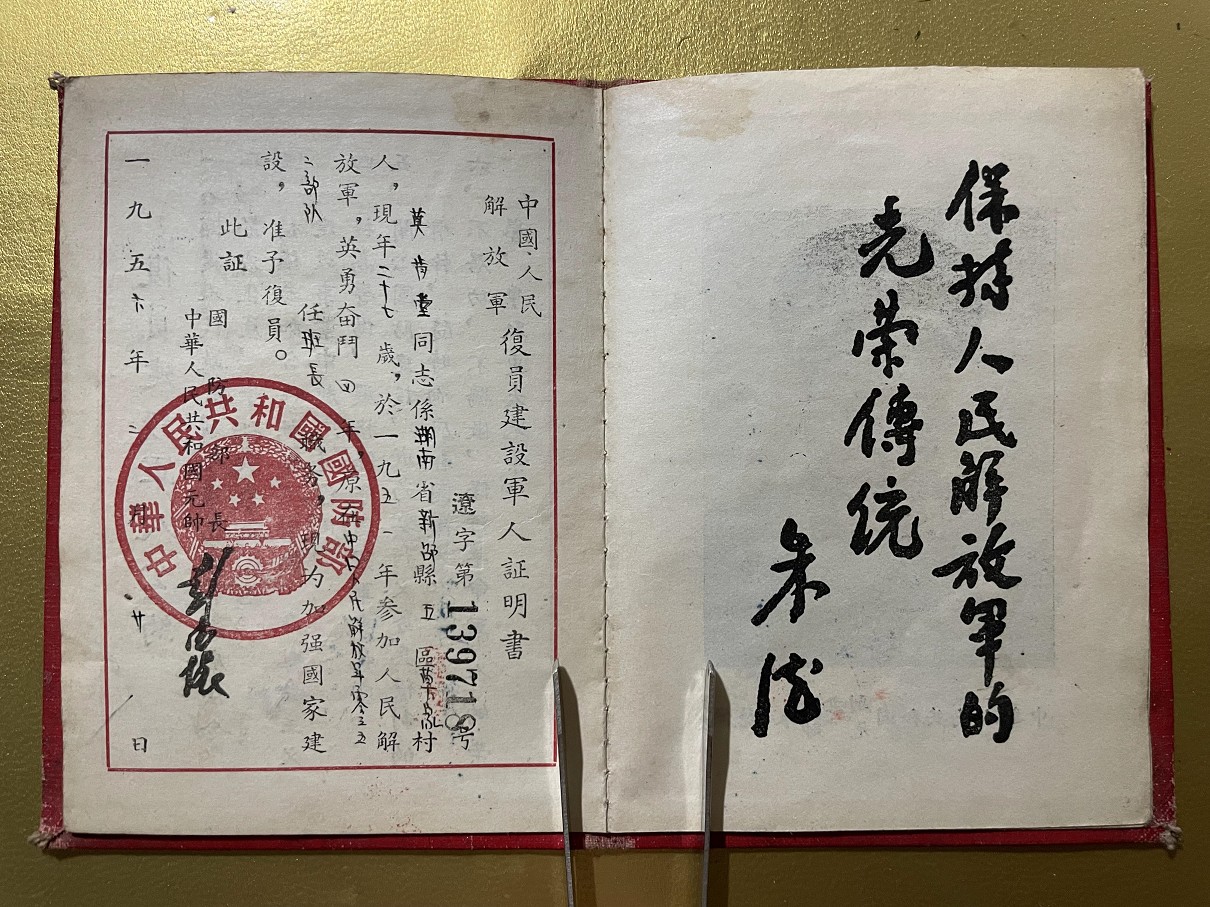 保持人民解放軍的
光荣傳统
朱德
中國人民
解放軍
復員建設軍人証明書
遼字第139718号
莫 堂同志係湖南省新邵縣五區 村
人，現年二十七歲，於一九五一年参加人民解
放軍，英勇奋鬥四年，原在中国人民解放军零三五
二部队 任班長 職务，現为加强國家建
設，准予復員。
此証
國防部長
中華人民共和國元帥 彭德怀
一九五六年二月廿 日
中華人民共和國國防部